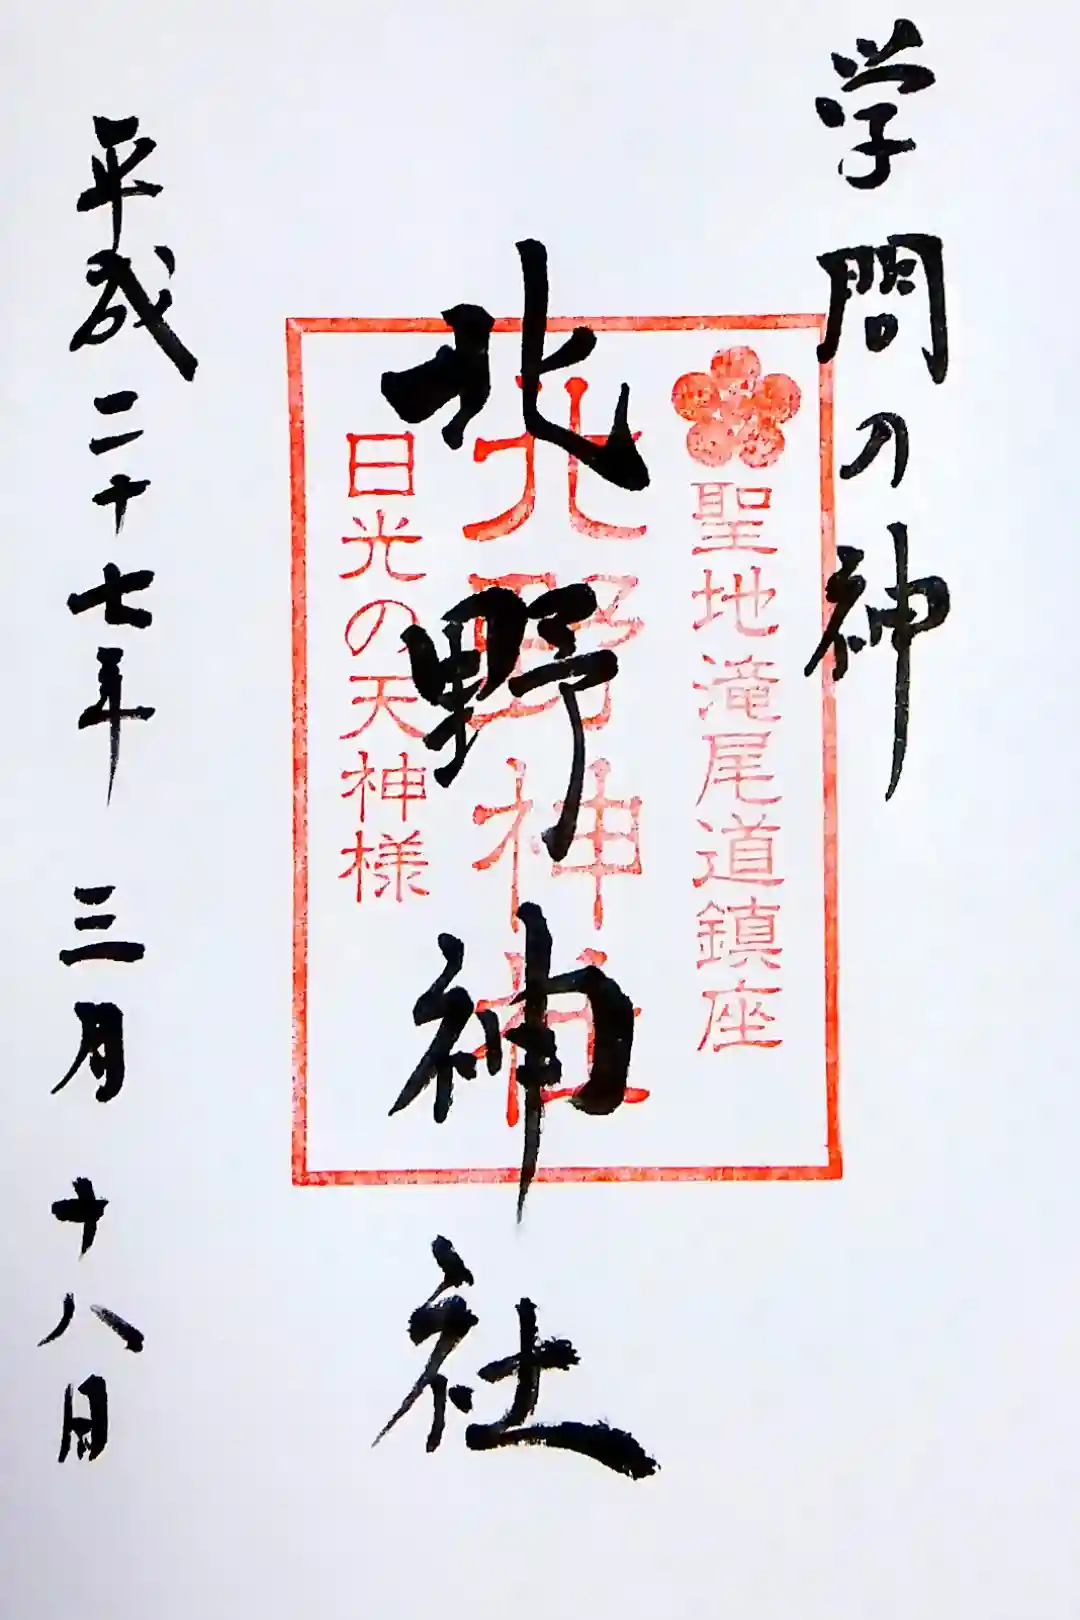 学問の神
聖地滝尾道鎮座
北野神社
北野神社
日光の天神様
平成二十七年 三月 十八日